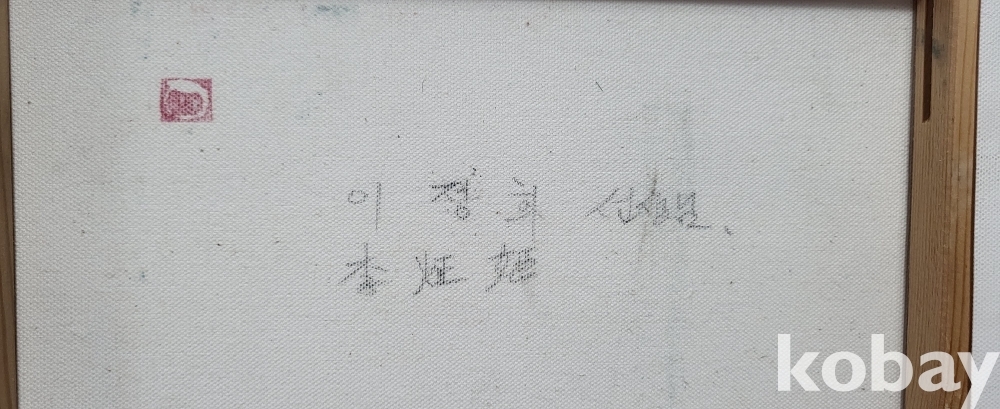 이정희 선생님.
李炡姬
kobay